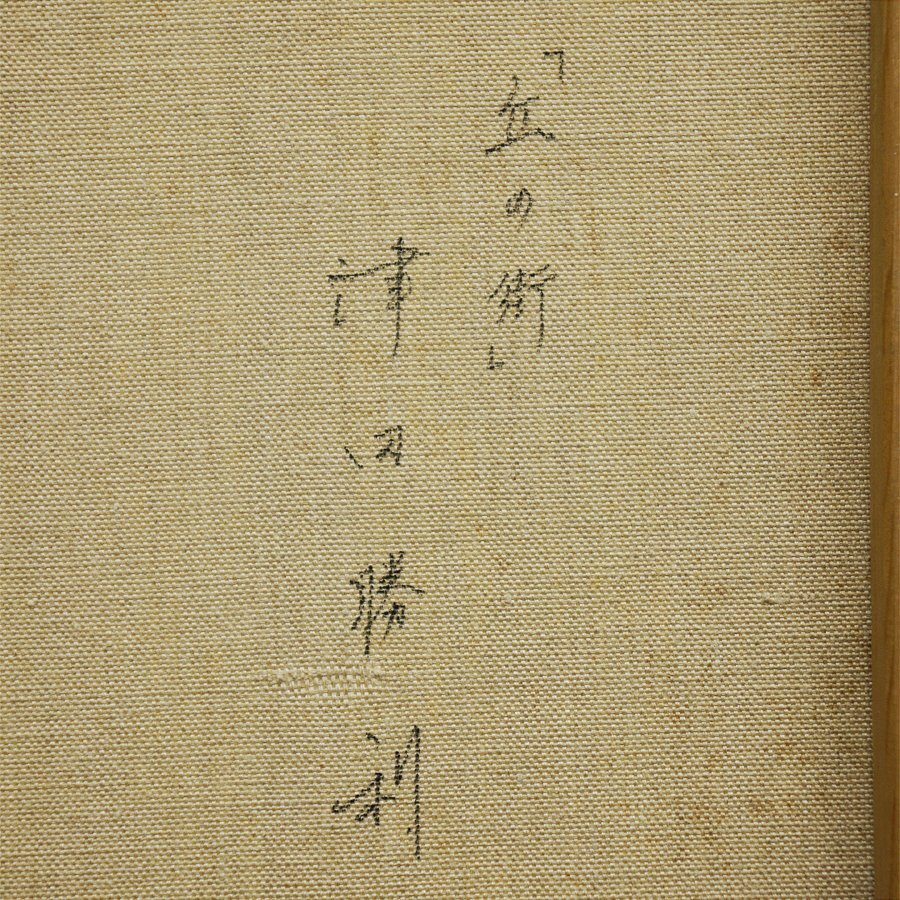 「丘の街」
津田勝利